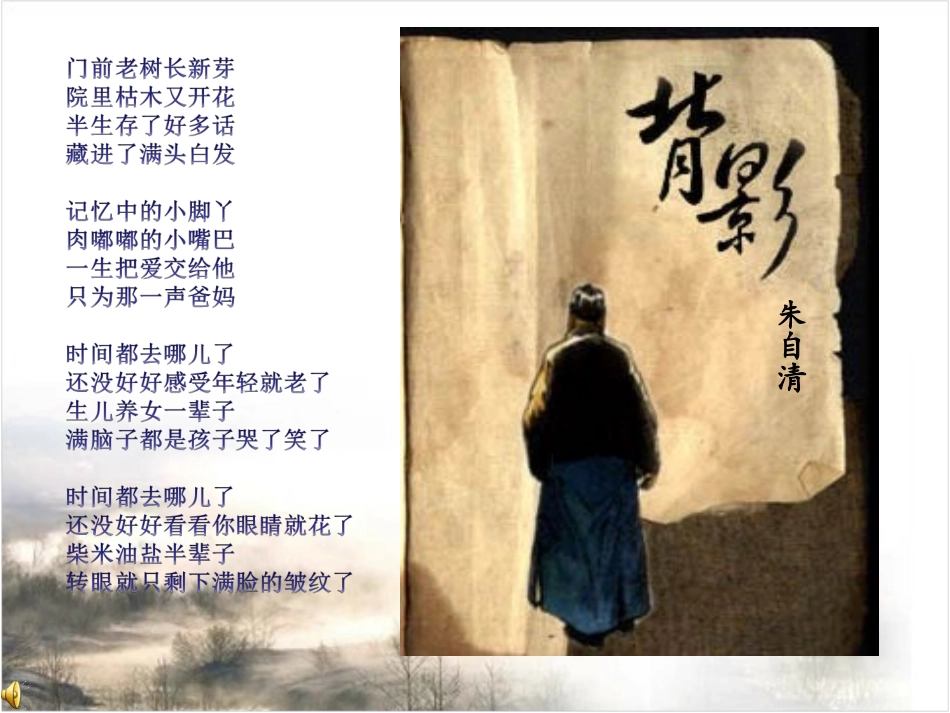 门前老树长新芽
院里枯木又开花
半生存了好多话
藏进了满头白发
记忆中的小脚丫
肉嘟嘟的小嘴巴
一生把爱交给他
只为那一声爸妈
时间都去哪儿了
还没好好感受年轻就老了
生儿养女一辈子
满脑子都是孩子哭了笑了
时间都去哪儿了
还没好好看看你眼睛就花了
柴米油盐半辈子
转眼就只剩下满脸的皱纹了
背影
朱自清